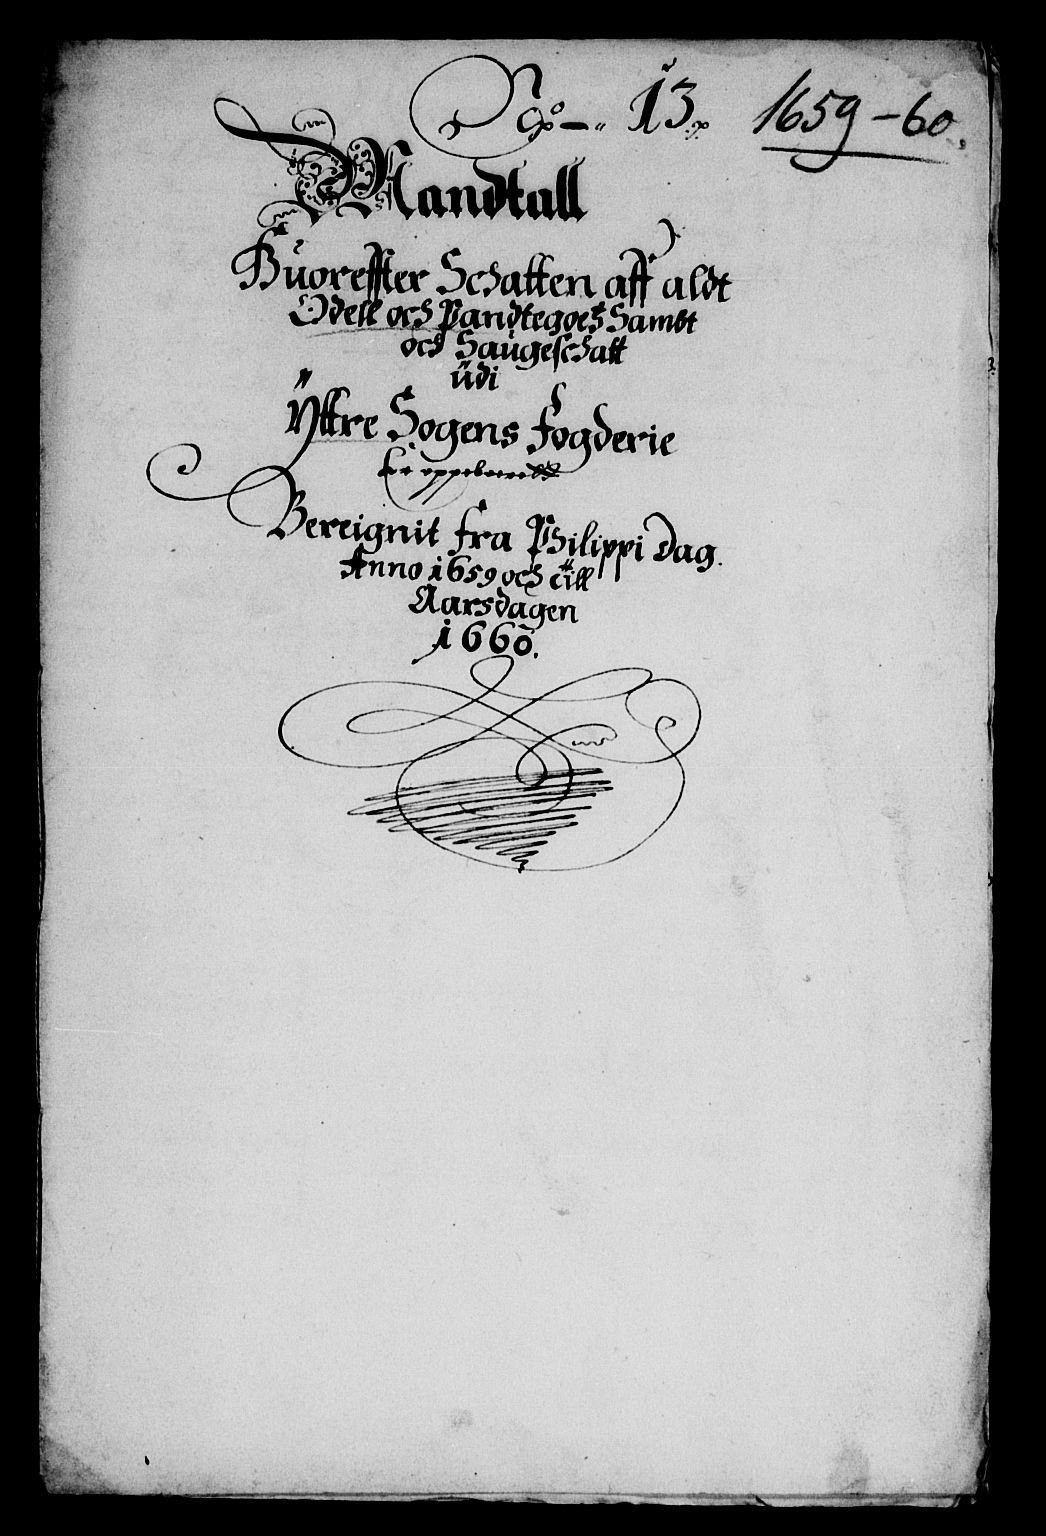 No 13. 1659-60.
Mandtall
Huoreffter Schatten aff aldt
Odell och Pandtegoetz Sambt
och Saugeschatt
udi
Yttre Sogens Fogderie
er oppeboeret
Bereignit fra Philippi Dag.
Anno 1659 och till
Aarsdagen
1660.